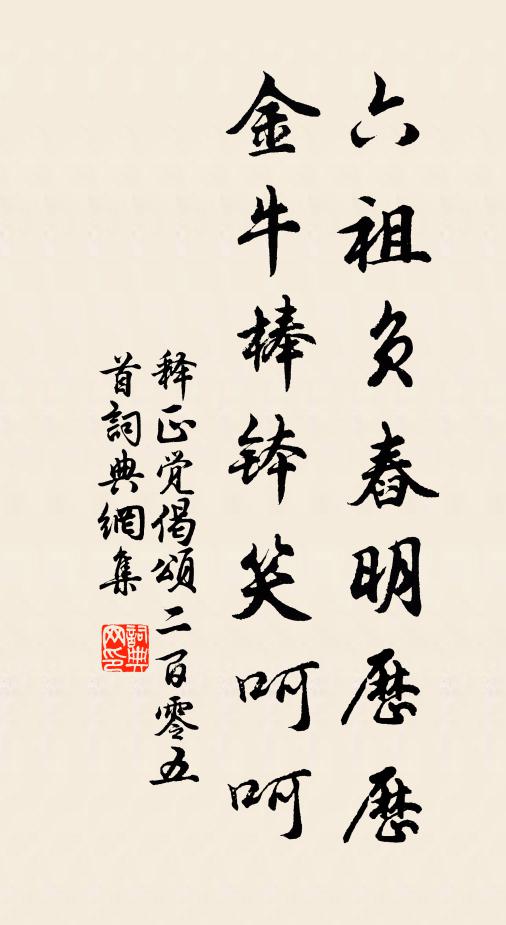 六祖负舂明歷歷
金牛棒钵笑呵呵
释正觉偈頌二百零五
首詞典網集
詞典
网印